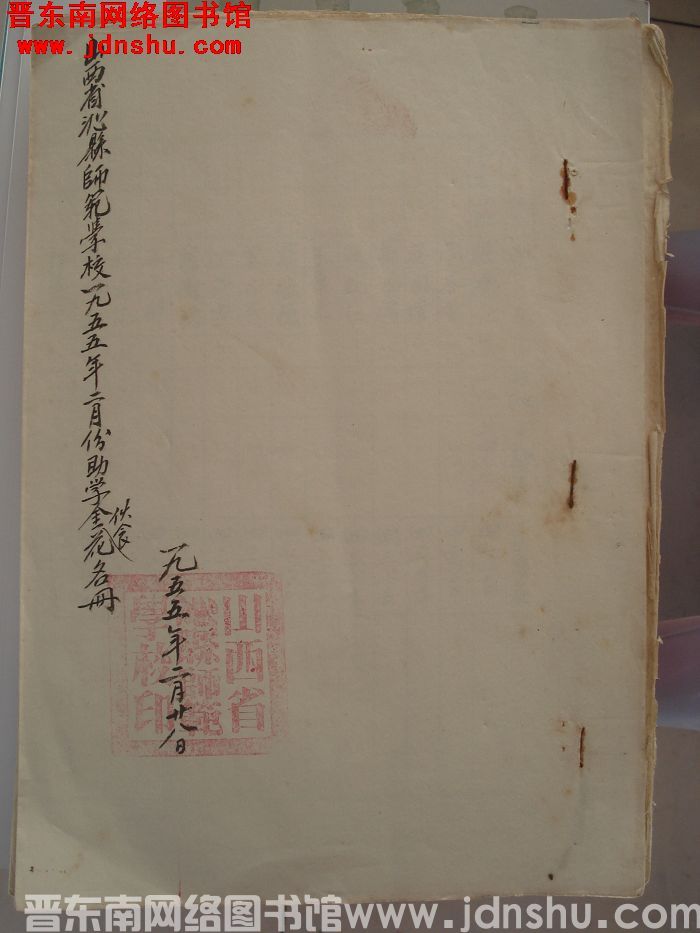 晋东南网络图书馆
www.jdnshu.com
山西省沁縣師范學校一九五五年二月份助学金花名册
伙食
一九五五年二月廿八日
山西省
沁縣師範
學校印
晋东南网络图书馆www.jdnshu.com